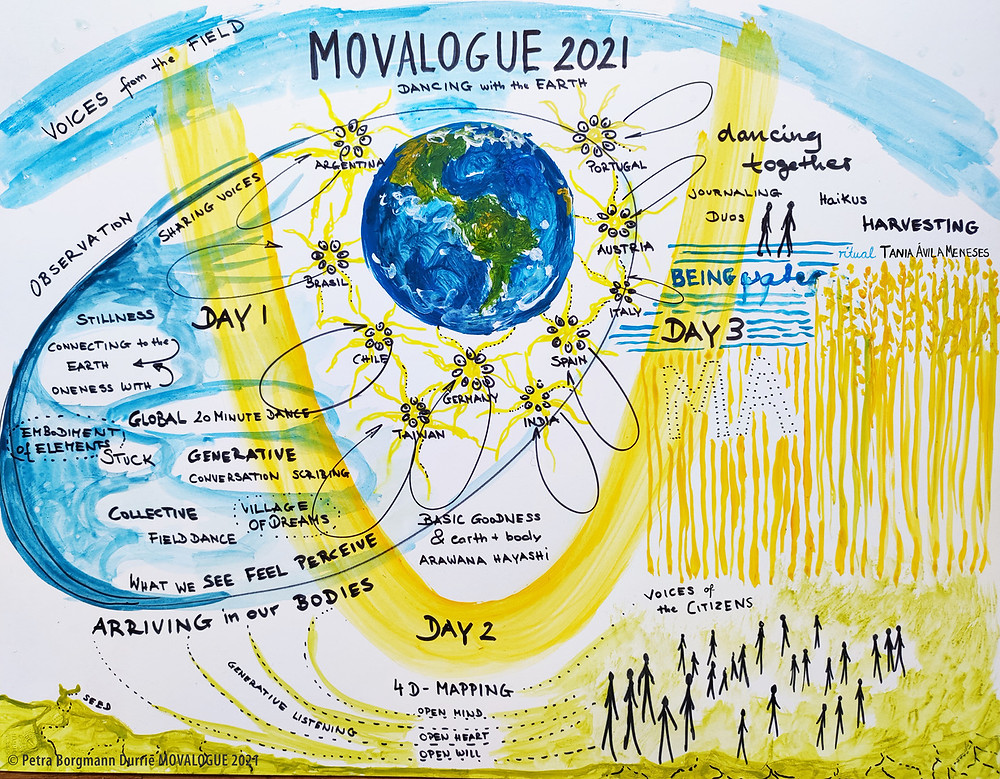 VOICES from the FIELD
MOVALOGUE 2021
DANCING with the EARTH
ARGENTINA
PORTUGAL
SHARING VOICES
BRASIL
AUSTRIA
ITALY
CHILE
SPAIN
GERMANY
TAIWAN
INDIA
OBSERVATION
DAY 1
STILLNESS
CONNECTING to the
EARTH
ONENESS WITH
GLOBAL 20 MINUTE DANCE
EMBODIMENT
of ELEMENTS
STUCK
GENERATIVE
CONVERSATION SCRIBING
COLLECTIVE
FIELD DANCE
VILLAGE
OF DREAMS
WHAT WE SEE FEEL PERCEIVE
ARRIVING in our BODIES
BASIC GOODNESS
& earth + body
ARAWANA HAYASHI
DAY 2
4D-MAPPING
OPEN MIND
OPEN HEART
OPEN WILL
GENERATIVE LISTENING
SEED
dancing
together
JOURNALING
DUOS
HAIKUS
HARVESTING
ritual TANIA ÁVILA MENESES
BEING water
DAY 3
MA
VOICES of
the CITIZENS
© Petra Borgmann Durrié MOVALOGUE 2021